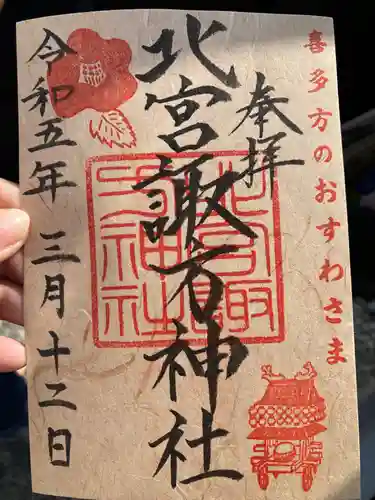 喜多方のおすわさま
奉拝
北宮諏方神社
令和五年 三月十二日
北宮諏
方神社